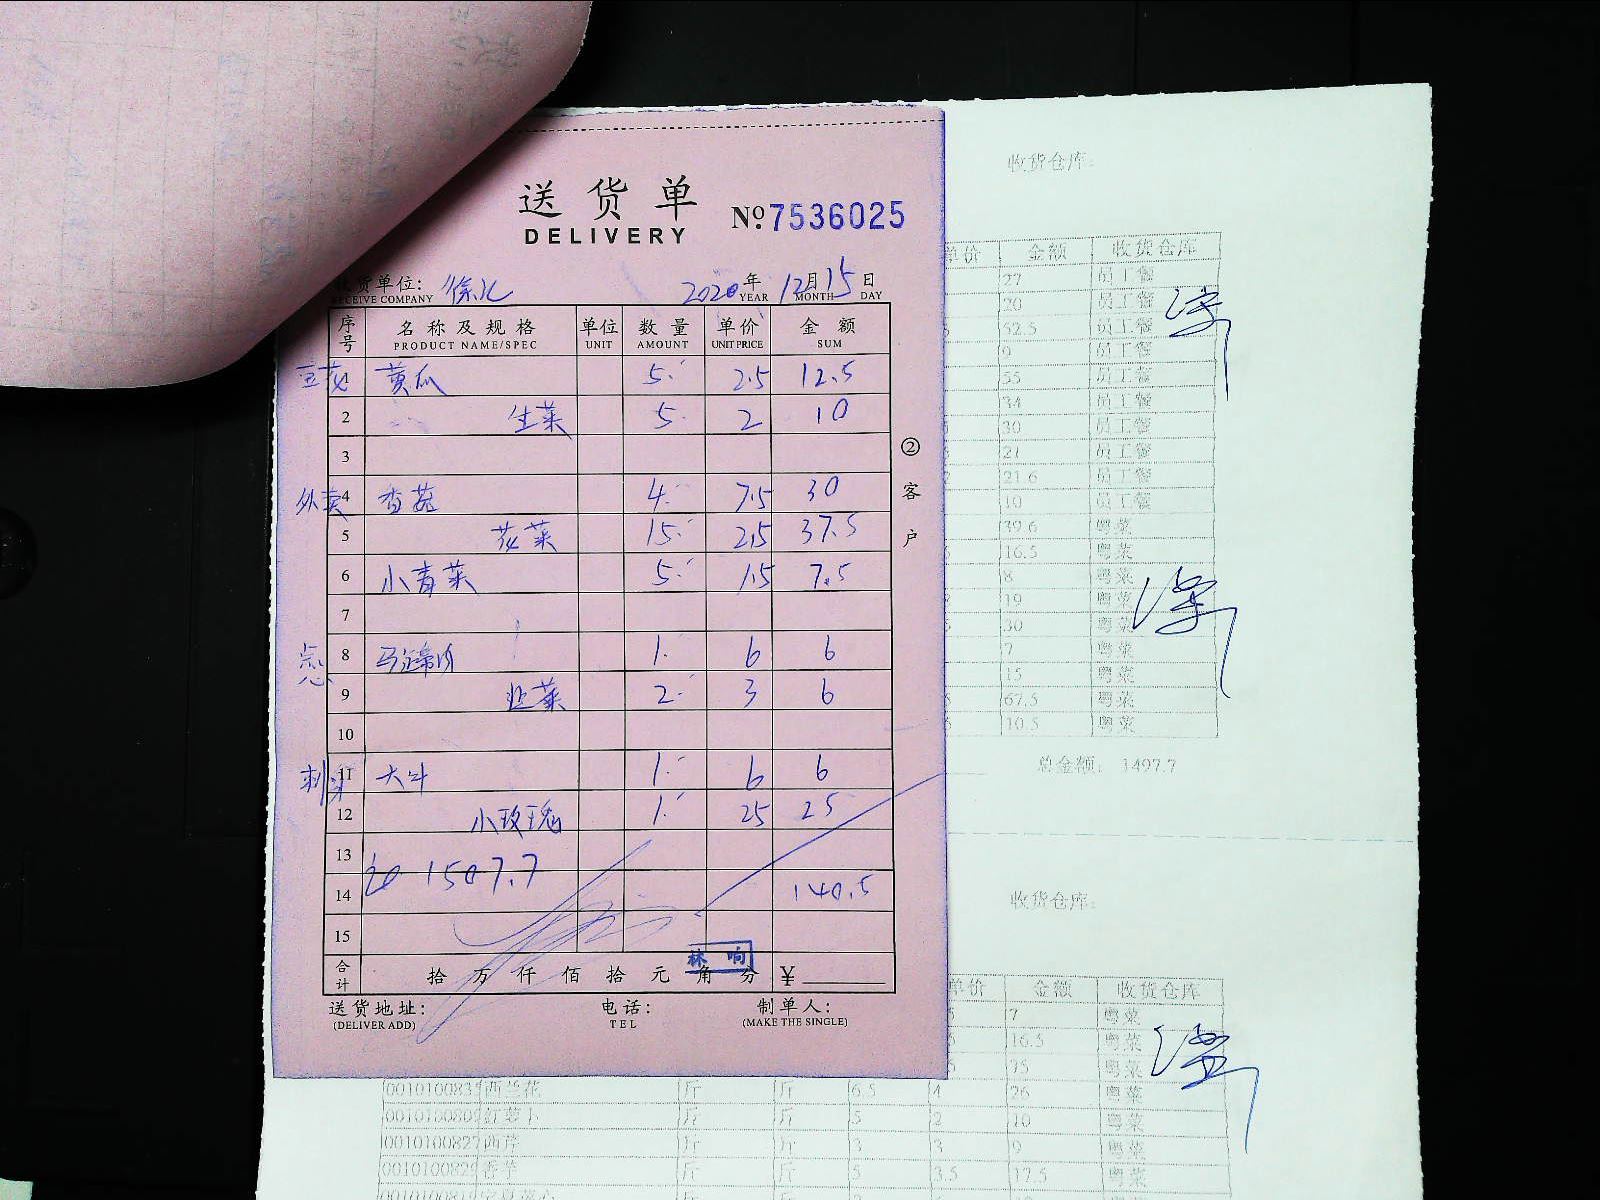 送货单
DELIVERY
№:7536025
货单位: 徐汇 2020年 12月 15日
RECEIVE COMPANY YEAR MONTH DAY
序号 名称及规格 单位 数量 单价 金额
PRODUCT NAME/SPEC UNIT AMOUNT UNIT PRICE SUM
黄瓜 5 2.5 12.5
2 生菜 5 2 10
3
外卖 4 香菇 4 7.5 30
5 花菜 15 2.5 37.5
6 小青菜 5 1.5 7.5
7
点心 8 1 6 6
9 韭菜 2 3 6
10
刺身 11 大叶 1 6 6
12 小玫瑰 1 25 25
13
1507.7
14 140.5
15
合计 拾 万 仟 佰 拾 元 角 分 ¥
林响
送货地址: 电话: 制单人:
(DELIVER ADD) TEL (MAKE THE SINGLE)
② 客户
收货仓库:
单价 金额 收货仓库
27 员工餐
20 员工餐
52.5 员工餐
9 员工餐
55 员工餐
34 员工餐
30 员工餐
21 员工餐
21.6 员工餐
10 员工餐
39.6 粤菜
16.5 粤菜
8 粤菜
19 粤菜
30 粤菜
7 粤菜
15 粤菜
67.5 粤菜
10.5 粤菜
总金额: 1497.7
收货仓库:
单价 金额 收货仓库
7 粤菜
16.5 粤菜
35 粤菜
西兰花 斤 斤 6.5 4 26 粤菜
红萝卜 斤 斤 5 2 10 粤菜
西芹 斤 斤 3 3 9 粤菜
香芋 斤 斤 5 3.5 17.5 粤菜